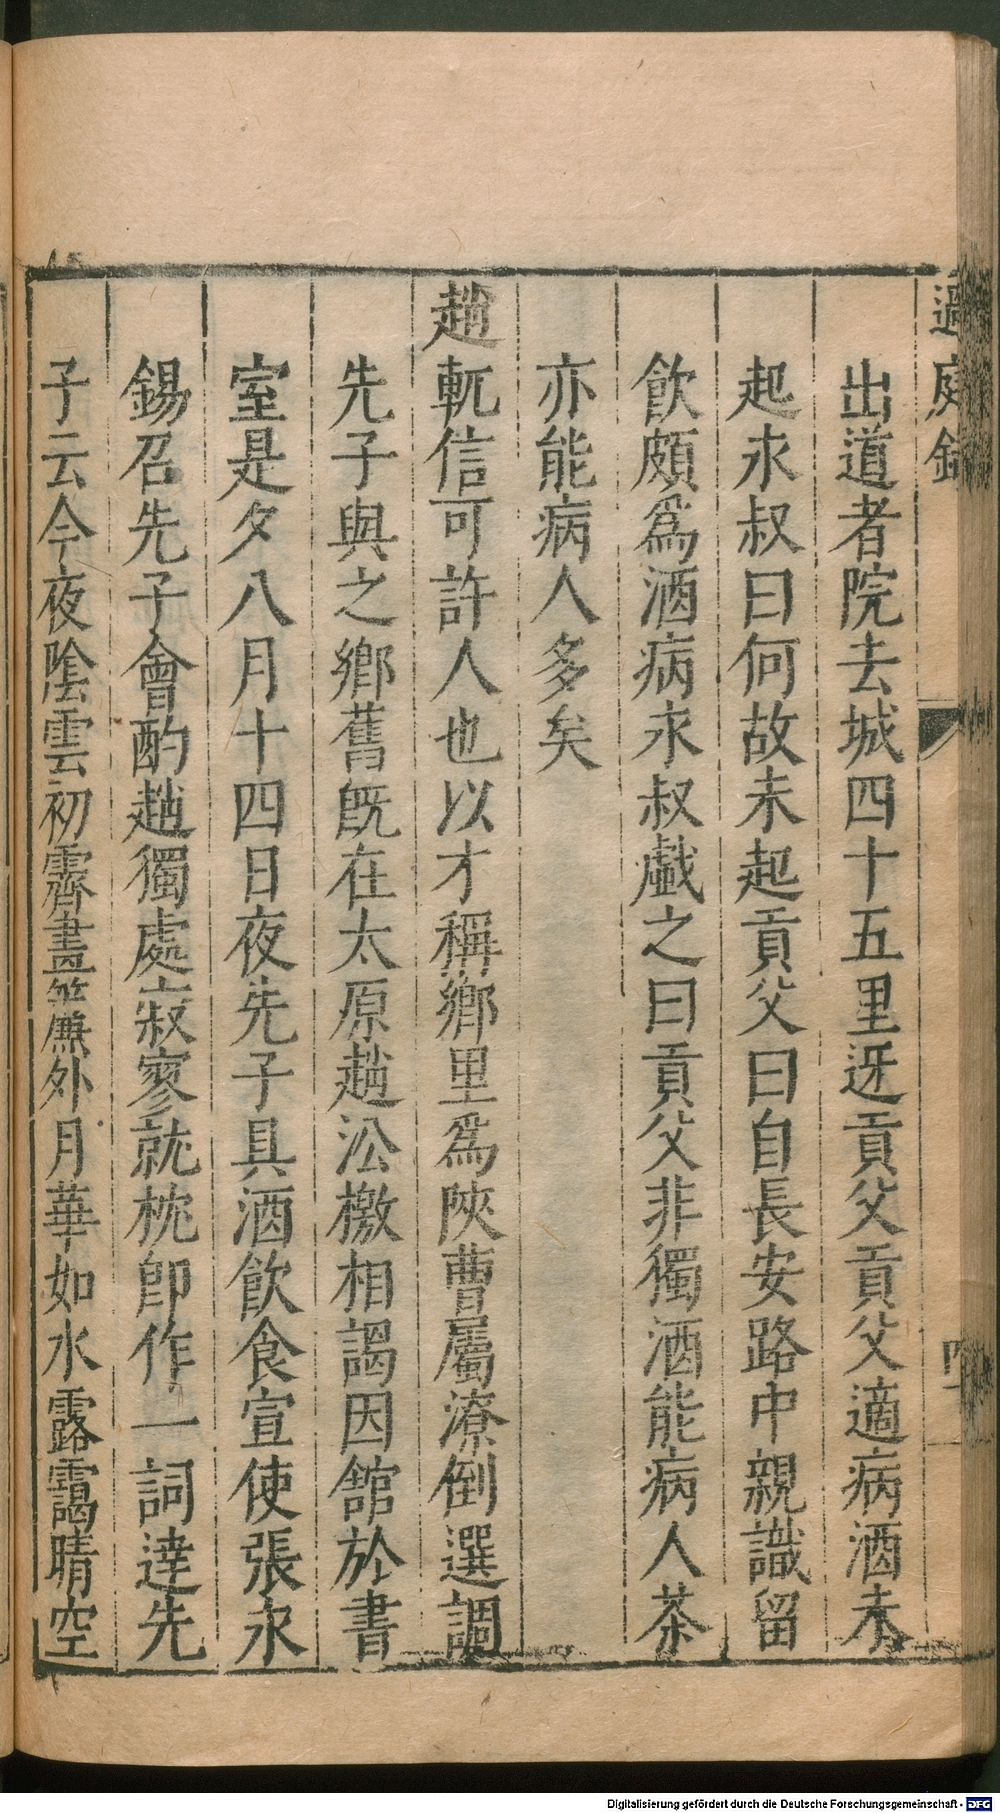 過庭録
出道者院去城四十五里迓貢父貢父適病酒未
起永叔曰何故未起貢父曰自長安路中親識留
飲頗爲酒病永叔戲之曰貢父非獨酒能病人茶
亦能病人多矣
趙軏信可許人也以才稱鄉里爲陝曹屬潦倒選調
先子與之鄉舊旣在太原趙沿檄相謁因舘於書
室是夕八月十四日夜先子具酒飲食宣使張永
錫召先子會酌趙獨處寂寥就枕卽作一詞達先
子云今夜陰雲初霽畫簾外月華如水露靄晴空
Digitalisierung gefördert durch die Deutsche Forschungsgemeinschaft - DFG